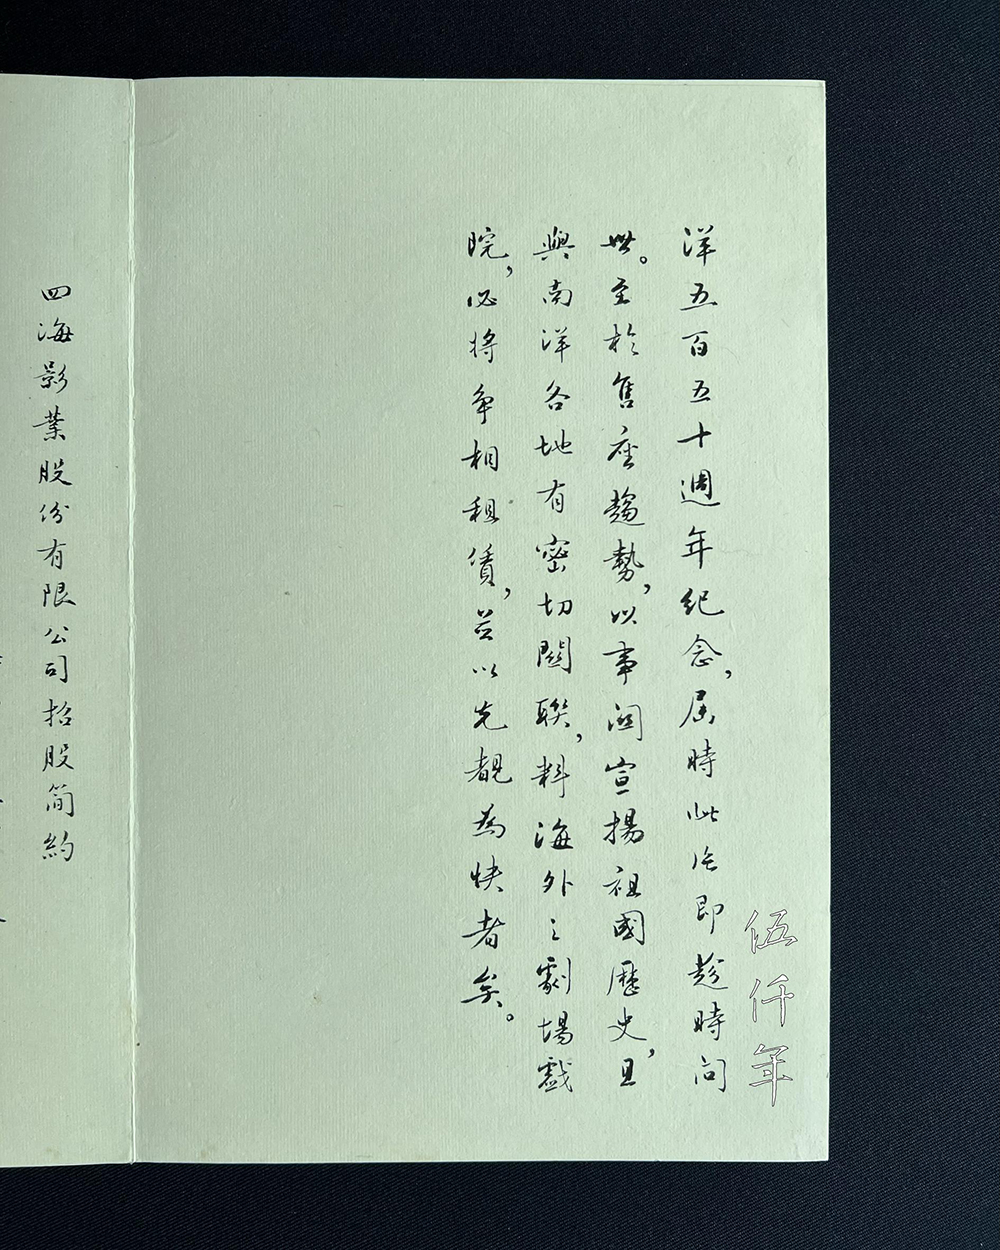 洋五百五十週年紀念，屆時此片即趁時問
世。至於售座趨勢，以事關宣揚祖國歷史，且
與南洋各地有密切關聯，料海外之劇場戲
院，必將爭相租賃，並以先覩為快者矣。
四海影業股份有限公司招股簡約
伍仟年